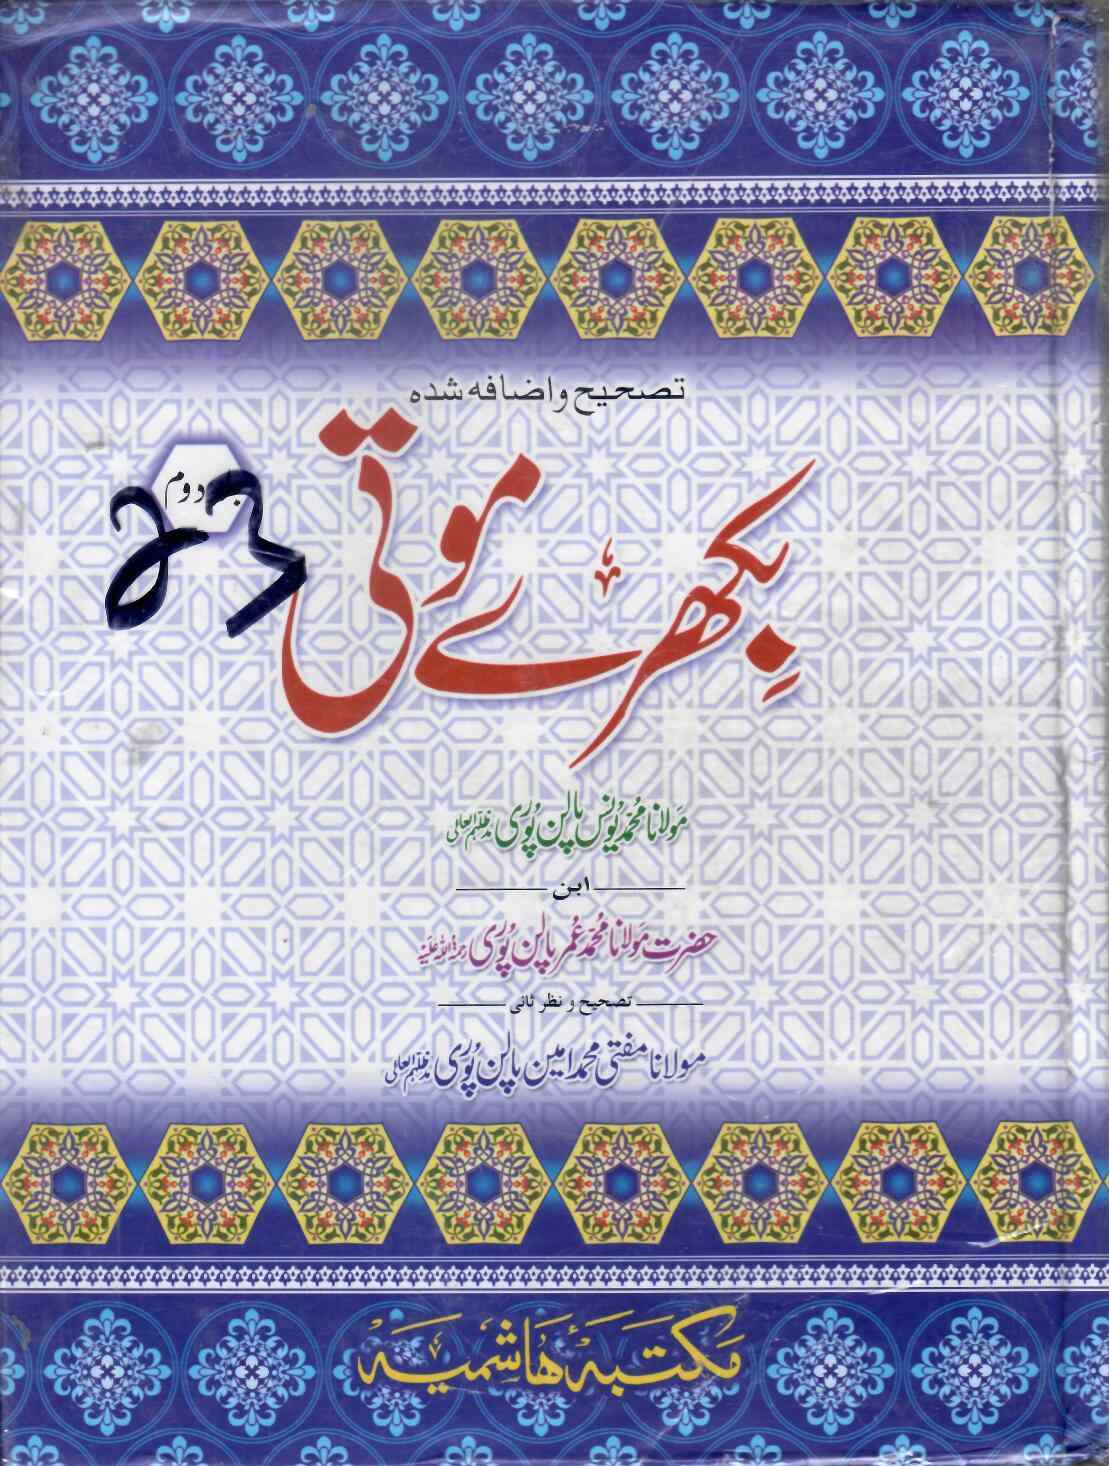 تصحیح و اضافہ شدہ
بِکھرے موتی
دوم
مولانا محمد یونس پالن پوری مدظلہم العالی
ابن
حضرت مولانا محمد عمر پالن پوری رحمۃ اللہ علیہ
تصحیح و نظر ثانی
مولانا مفتی محمد امین پالن پوری مدظلہم العالی
مکتبۂ هاشمیہ